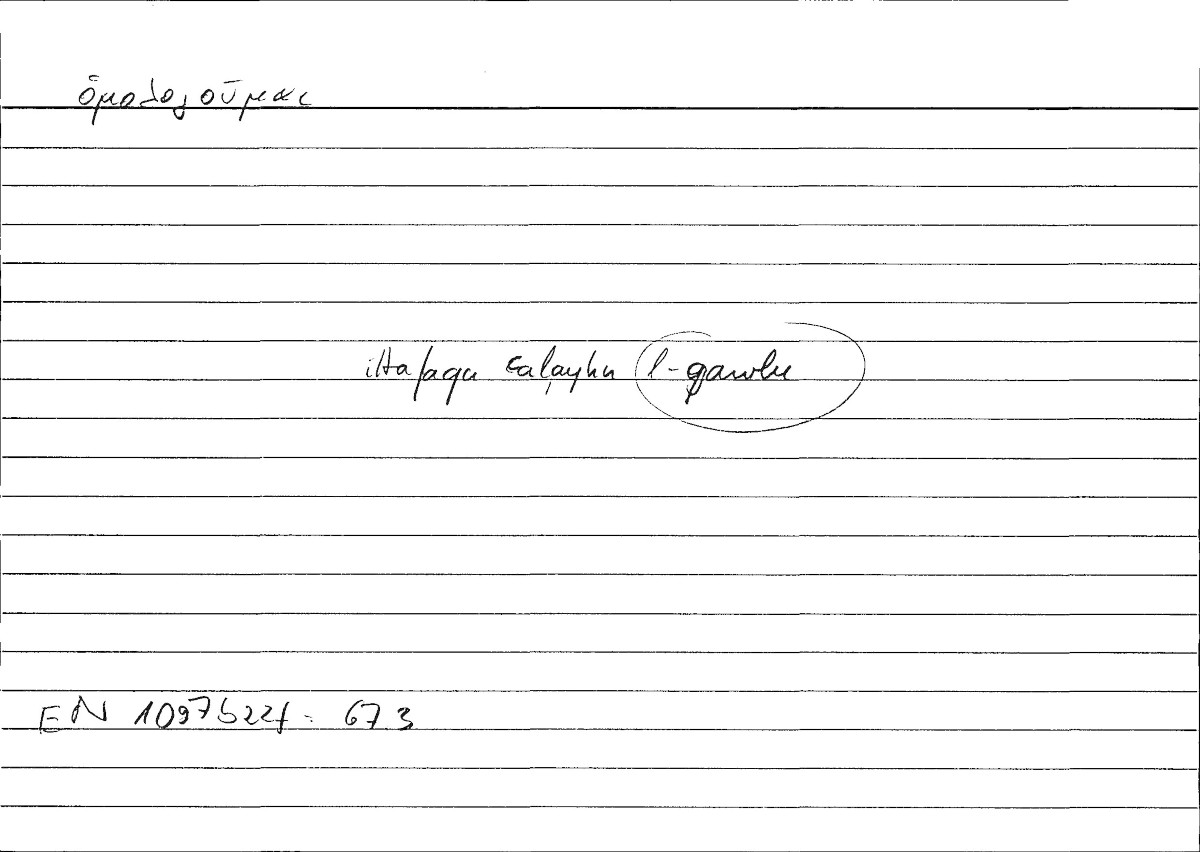 ὁμολογοῦμαι
ittafaqū ʿalayhi l-qawlu
EN 1097b22f. 67.3